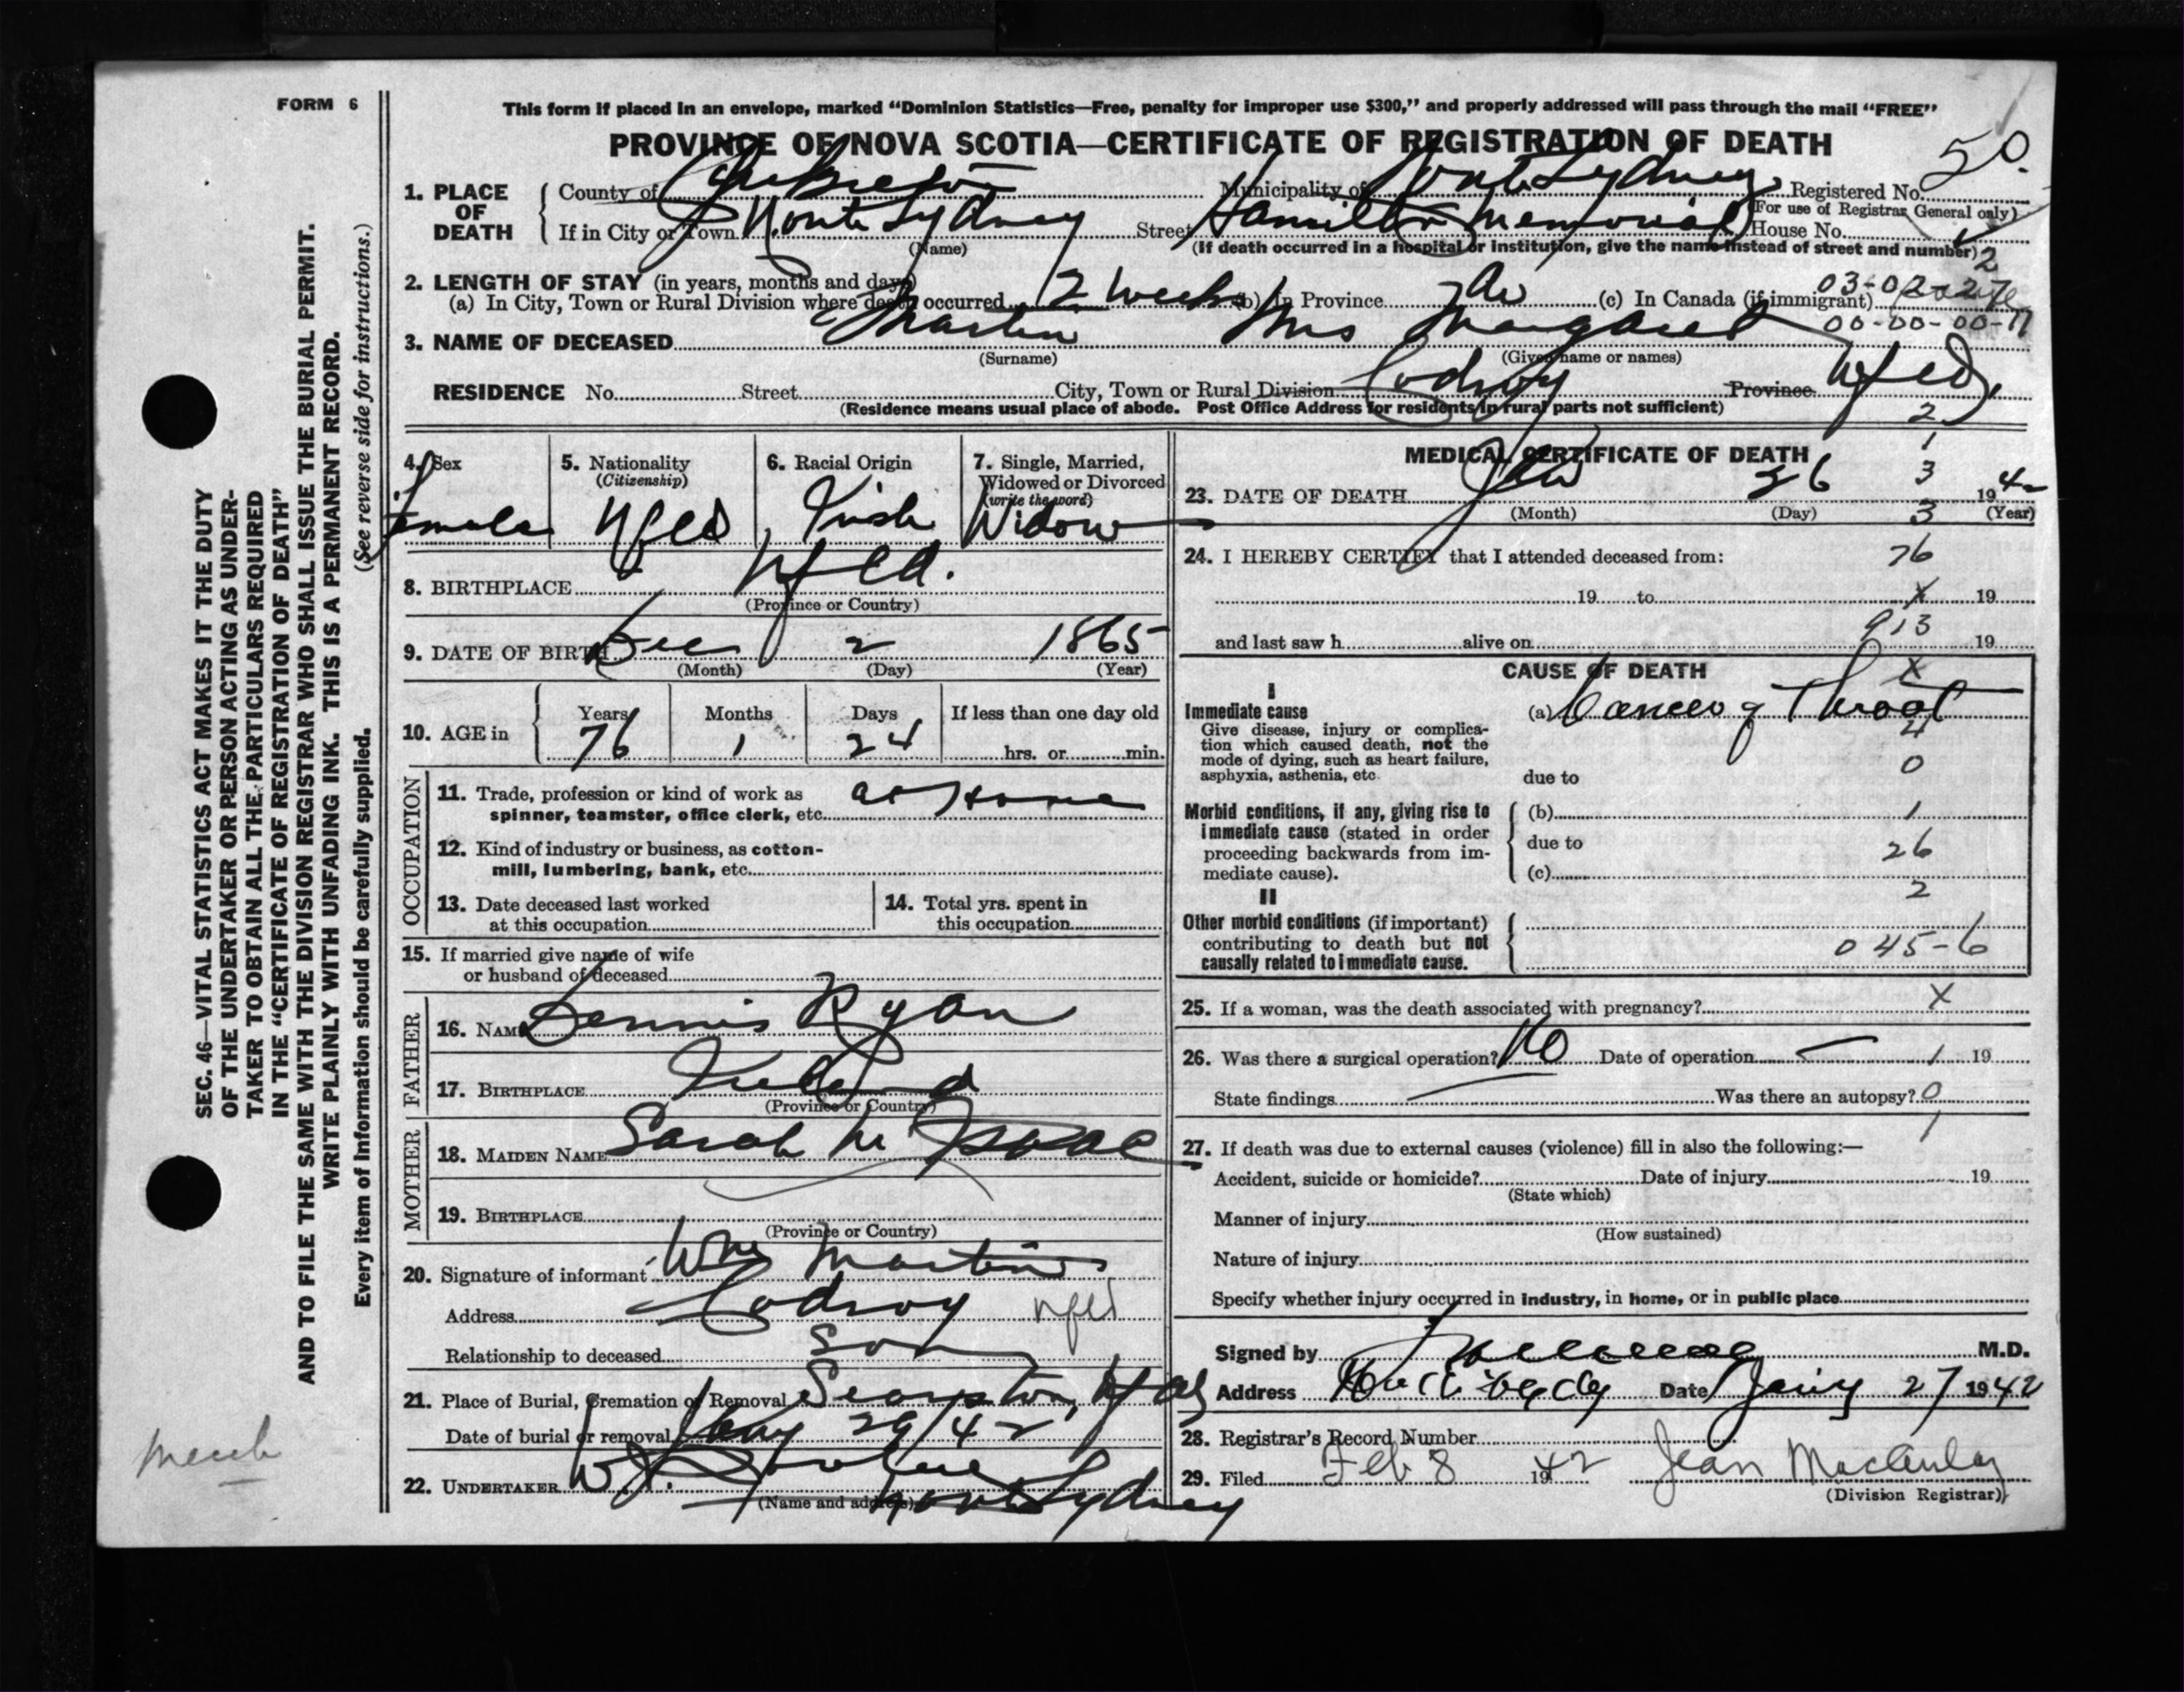 FORM 6
SEC. 46—VITAL STATISTICS ACT MAKES IT THE DUTY
OF THE UNDERTAKER OR PERSON ACTING AS UNDER-
TAKER TO OBTAIN ALL THE PARTICULARS REQUIRED
IN THE "CERTIFICATE OF REGISTRATION OF DEATH"
AND TO FILE THE SAME WITH THE DIVISION REGISTRAR WHO SHALL ISSUE THE BURIAL PERMIT.
WRITE PLAINLY WITH UNFADING INK. THIS IS A PERMANENT RECORD.
Every item of information should be carefully supplied. (See reverse side for instructions.)
This form if placed in an envelope, marked "Dominion Statistics—Free, penalty for improper use $300," and properly addressed will pass through the mail "FREE"
PROVINCE OF NOVA SCOTIA—CERTIFICATE OF REGISTRATION OF DEATH
50.
1. PLACE OF DEATH County of Cape Breton Municipality of North Sydney Registered No.
(For use of Registrar General only)
If in City or Town North Sydney Street Hamilton Memorial House No.
(Name) (If death occurred in a hospital or institution, give the name instead of street and number)
2
2. LENGTH OF STAY (in years, months and days) 03-02-27
(a) In City, Town or Rural Division where death occurred 2 Weeks (b) In Province (c) In Canada (if immigrant)
00-00-00-17
3. NAME OF DECEASED Martin Mrs Margaret
(Surname) (Given name or names)
RESIDENCE No. Street City, Town or Rural Division Codroy Province Nfld.
(Residence means usual place of abode. Post Office Address for residents in rural parts not sufficient)
2
4. Sex Female
5. Nationality (Citizenship) Nfld
6. Racial Origin Irish
7. Single, Married, Widowed or Divorced (write the word) Widow
8. BIRTHPLACE Nfld.
(Province or Country)
9. DATE OF BIRTH Dec 2 1865
(Month) (Day) (Year)
10. AGE in Years 76 Months 1 Days 24 If less than one day old
hrs. or min.
OCCUPATION
11. Trade, profession or kind of work as at Home
spinner, teamster, office clerk, etc.
12. Kind of industry or business, as cotton-
mill, lumbering, bank, etc.
13. Date deceased last worked
at this occupation
14. Total yrs. spent in
this occupation
15. If married give name of wife
or husband of deceased
FATHER
16. NAME Dennis Ryan
17. BIRTHPLACE Ireland
(Province or Country)
MOTHER
18. MAIDEN NAME Sarah Mc Isaac
19. BIRTHPLACE
(Province or Country)
20. Signature of informant Wm Martin
Address Codroy Nfld
Relationship to deceased Son
21. Place of Burial, Cremation or Removal Searston, Nfld
Date of burial or removal Jany 29/42
22. UNDERTAKER W.J.
(Name and address) North Sydney
MEDICAL CERTIFICATE OF DEATH
1
23. DATE OF DEATH Jan 26 3 1942
(Month) (Day) 3 (Year)
24. I HEREBY CERTIFY that I attended deceased from: 76
19 to x 19
and last saw h alive on 913 19
CAUSE OF DEATH x
I
Immediate cause (a) Cancer of Throat
Give disease, injury or complica- 4
tion which caused death, not the
mode of dying, such as heart failure, 0
asphyxia, asthenia, etc. due to
Morbid conditions, if any, giving rise to (b) 1
immediate cause (stated in order
proceeding backwards from im- due to 26
mediate cause). (c)
II 2
Other morbid conditions (if important)
contributing to death but not 045-6
causally related to immediate cause.
25. If a woman, was the death associated with pregnancy? x
26. Was there a surgical operation? No Date of operation — 1 19
State findings — Was there an autopsy? 0
1
27. If death was due to external causes (violence) fill in also the following:—
Accident, suicide or homicide? Date of injury 19
(State which)
Manner of injury
(How sustained)
Nature of injury
Specify whether injury occurred in industry, in home, or in public place
Signed by M.D.
Address Date Jany 27 1942
28. Registrar's Record Number
29. Filed Feb 8 1942 Jean MacAulay
(Division Registrar)